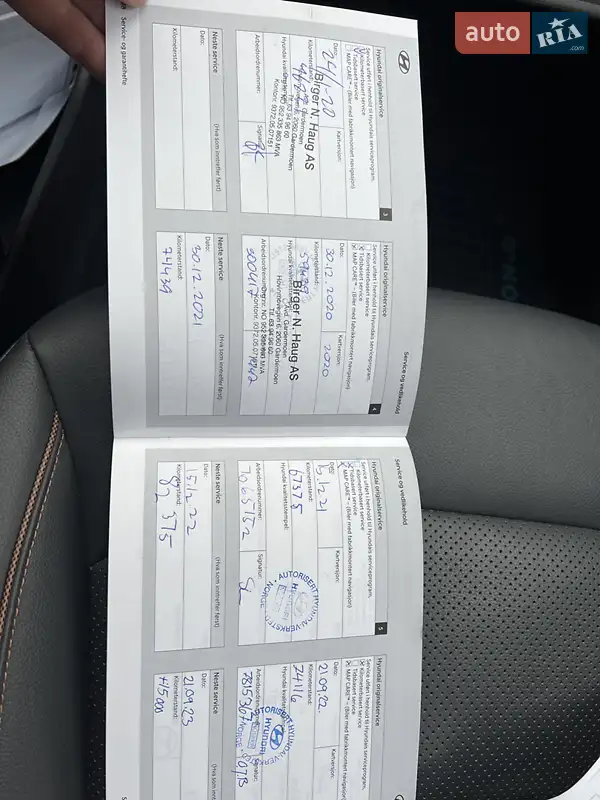 auto RIA .com
Service- og garantihefte
Hyundai originalservice
Service utført i henhold til Hyundais serviceprogram.
Kilometerbasert service
Tidsbasert service
MAP CARE™ – (Biler med fabrikkmontert navigasjon)
Kartversjon:
24/1-20
Kilometerstand:
Birger N. Haug AS
Avd. Gardermoen
Arbeidsordrenummer:
Signatur:
3
Neste service
(Hva som inntreffer først)
Dato:
Kilometerstand:
Service og vedlikehold
Hyundai originalservice
Service utført i henhold til Hyundais serviceprogram.
Kilometerbasert service
Tidsbasert service
MAP CARE™ – (Biler med fabrikkmontert navigasjon)
Dato:
Kartversjon:
30.12.2020
2020
Kilometerstand:
Birger N. Haug AS
Avd. Gardermoen
Hovinmovegen 6, 2060 Gardermoen
Tlf. 63 94 96 60
4
Neste service
(Hva som inntreffer først)
Dato:
30.12.2021
Kilometerstand:
74439
Service og vedlikehold
Hyundai originalservice
Service utført i henhold til Hyundais serviceprogram.
Kilometerbasert service
Tidsbasert service
MAP CARE™ – (Biler med fabrikkmontert navigasjon)
Dato:
Kartversjon:
15/12 21
Kilometerstand:
67375
Hyundai kvalitetsstempel:
AUTORISERT HYUNDAI VERKSTED
NORGE
Arbeidsordrenummer:
Signatur:
7065152
5
Neste service
(Hva som inntreffer først)
Dato:
15/12 22
Kilometerstand:
82 375
Hyundai originalservice
Service utført i henhold til Hyundais serviceprogram.
Kilometerbasert service
Tidsbasert service
MAP CARE™ – (Biler med fabrikkmontert navigasjon)
Dato:
Kartversjon:
21.09.22
Kilometerstand:
74116
AUTORISERT HYUNDAI VERKSTED
HYUNDAI
NORGE
7815367
Neste service
(Hva som inntreffer først)
Dato:
21.09.23
Kilometerstand:
+15.000